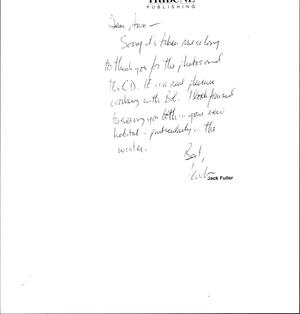 TRIBUNE
PUBLISHING
Dear Ann —
Sorry it's taken me so long
to thank you for the photos and
the CD. It is a real pleasure
working with Bob. I look forward
to seeing you both in your new
habitat — particularly in the
winter.
Best,
Jack
Jack Fuller